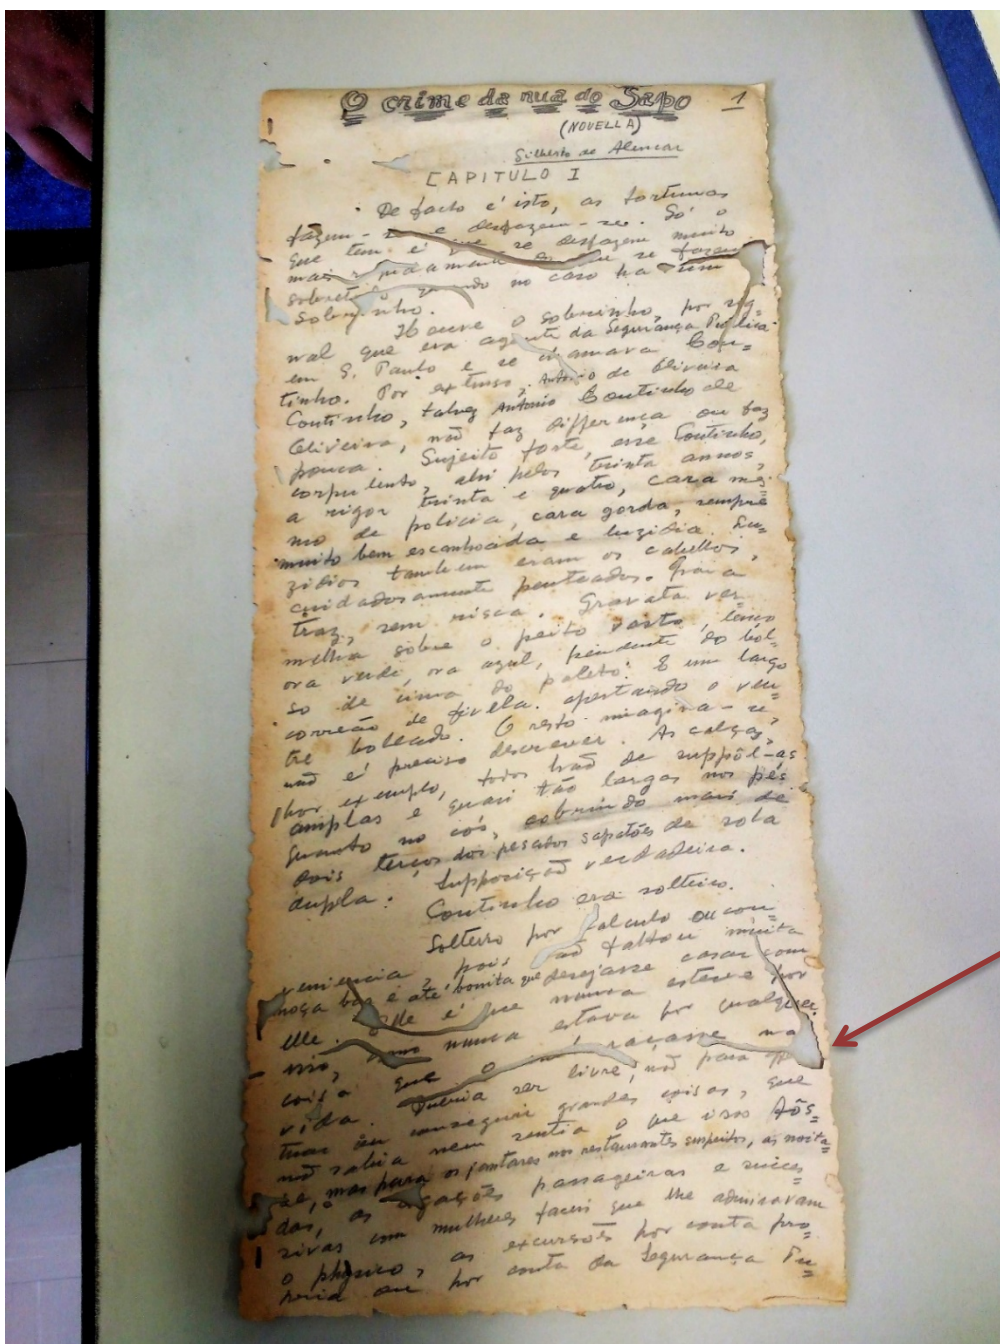 O crime da rua do Sapo 1
(NOVELLA)
Gilberto de Alencar
CAPITULO I
De facto é isto, as fortunas
fazem-se e desfazem-se. Só o
que tem é que se desfazem muito
mais rapidamente do que se fazem
sobretudo quando no caso ha um
sobrinho.
Houve o sobrinho, por sig=
nal que era agente da Segurança Publica
em S. Paulo e se chamava Cou=
tinho. Por extenso, Antonio de Oliveira
Coutinho, talvez Antonio Coutinho de
Oliveira, não faz differença ou faz
pouca. Sujeito forte, esse Coutinho,
corpulento, ahi pelos trinta annos,
a rigor trinta e quatro, cara mes=
mo de policia, cara gorda, sempre
muito bem escanhoada e luzidia. Lu=
zidios tambem eram os cabellos,
cuidadosamente penteados para
traz, sem risca. Gravata ver=
melha sobre o peito vasto, lenço
ora verde, ora azul, pendente do bol=
so de cima do paletó. E um largo
correão de fivela apertando o ven=
tre boleado. O resto imagina-se,
não é preciso descrever. As calças,
por exemplo, todos hão de suppôl-as
amplas e quasi tão largas nos pés
quanto no cós, cobrindo mais de
dois terços dos pesados sapatões de sola
dupla. Supposição verdadeira.
Coutinho era solteiro.
Solteiro por calculo ou con=
veniencia, pois não faltou muita
moça boa e até bonita que desejasse casar com
elle. Elle é que nunca esteve por
isso, como nunca estava por qualquer
coisa que o embaraçasse na
vida. Queria ser livre, não para
tentar ou conseguir grandes coisas, que
não sabia nem sentia o que isso fôs=
se, mas para os jantares nos restaurantes suspeitos, as noita=
das, as ligações passageiras e succes=
sivas com mulheres faceis que lhe admiravam
o physico, as excursões por conta pro=
pria ou por conta da Segurança Pu=